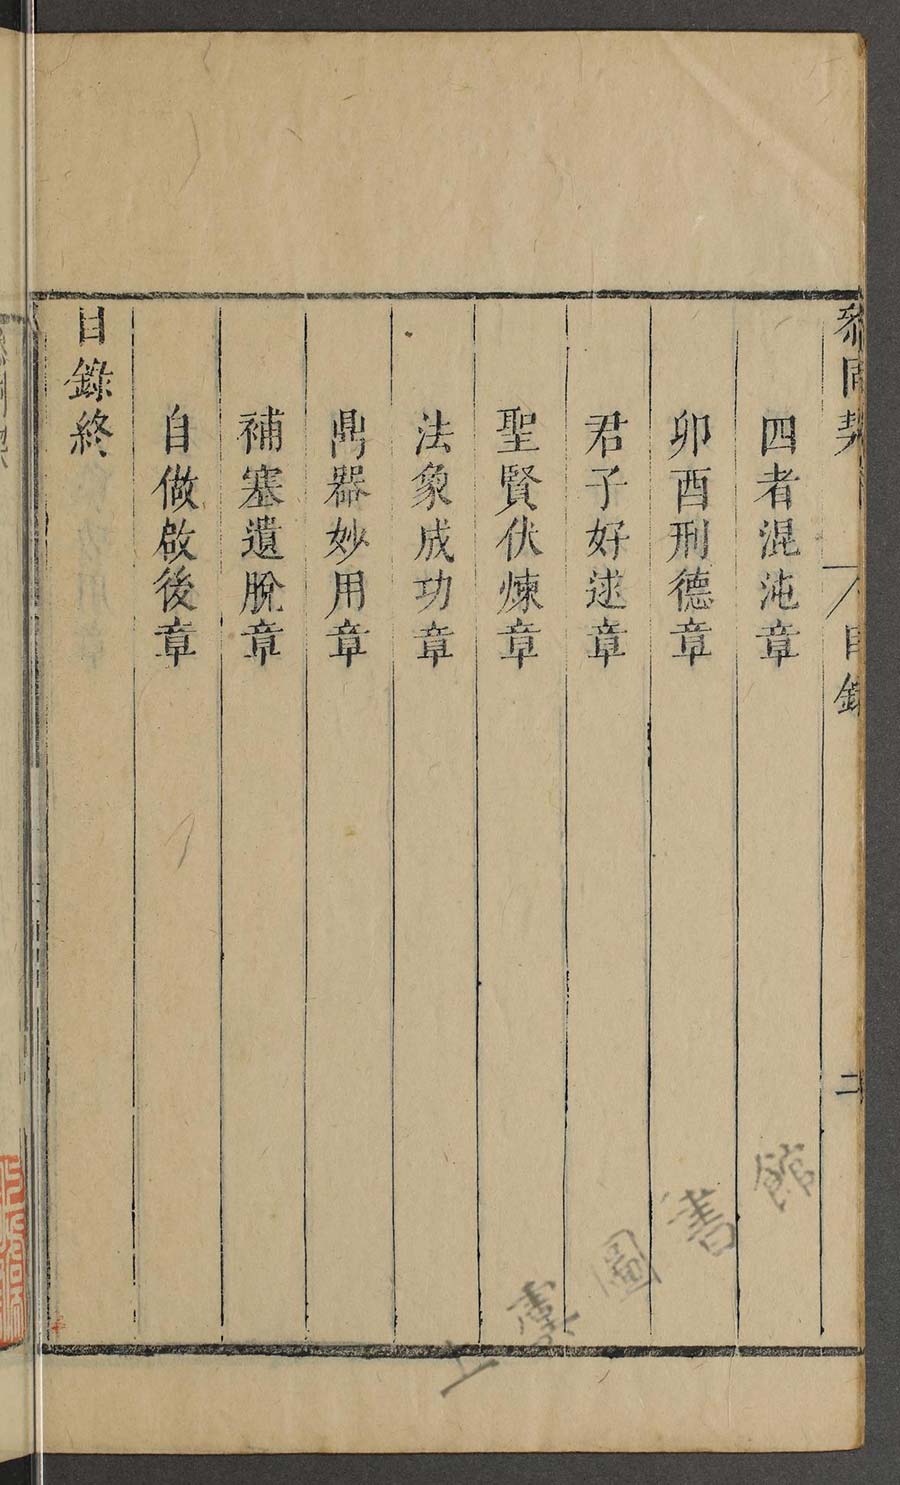 參同契 目錄 二
四者混沌章
卯酉刑德章
君子好逑章
聖賢伏煉章
法象成功章
鼎器妙用章
補塞遺脫章
自做啟後章
目錄終
上虞圖書館